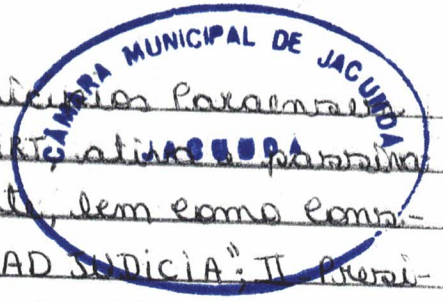 CÂMARA MUNICIPAL DE JACUNDA
JACUNDA
nicipios Paraenses
ativa e passiva
te, bem como cons-
AD JUDICIA"; II Presi-